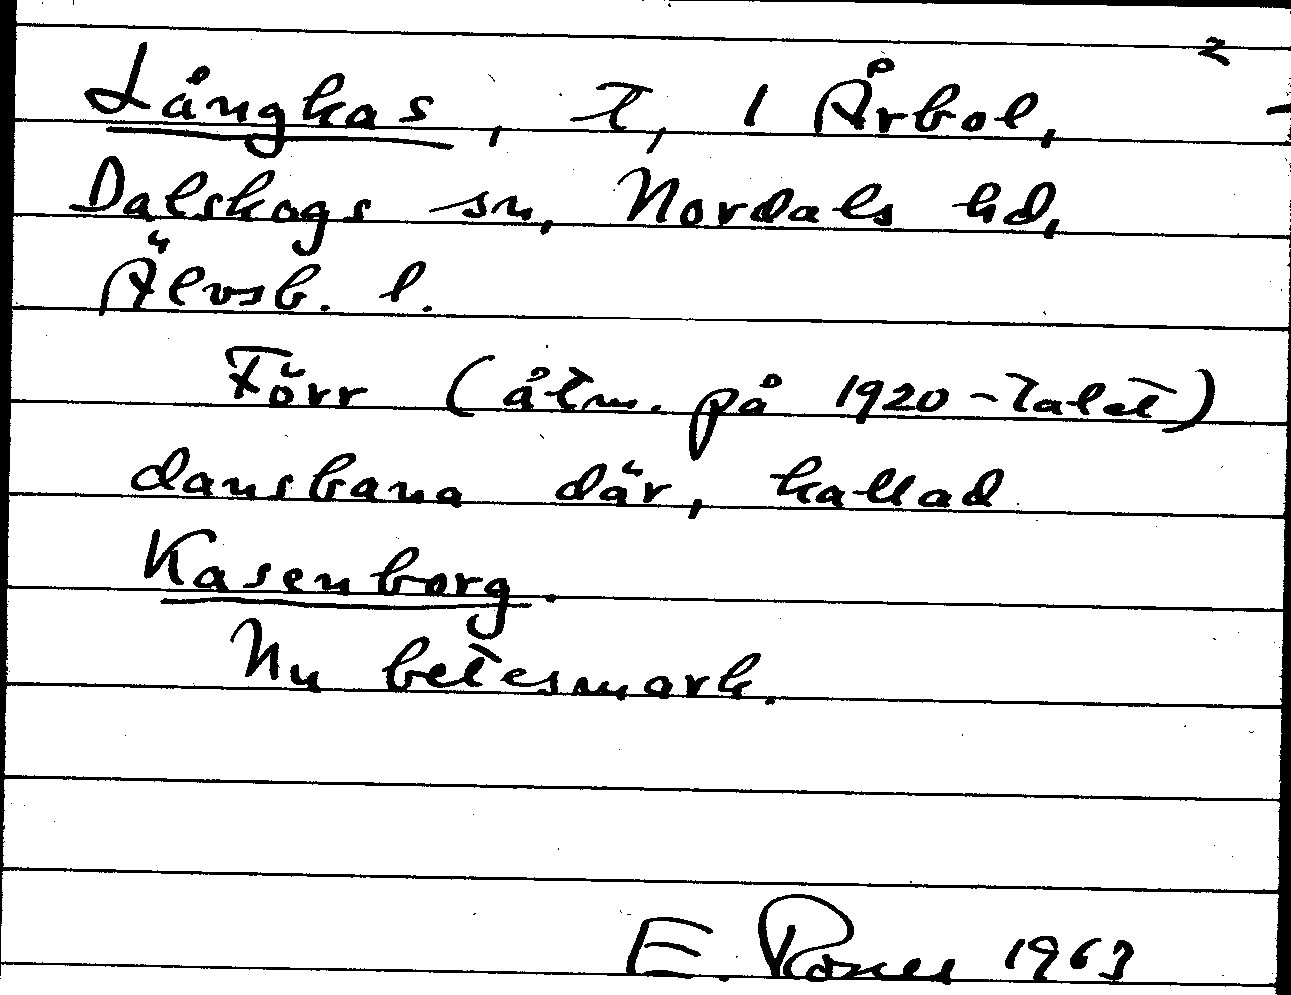 2
Långkas, t, 1 Årbol,
Dalskogs sn, Nordals hd,
Älvsb. l.
Förr (åtm. på 1920-talet)
dansbana där, kallad
Kasenborg.
Nu betesmark.
E. 1963